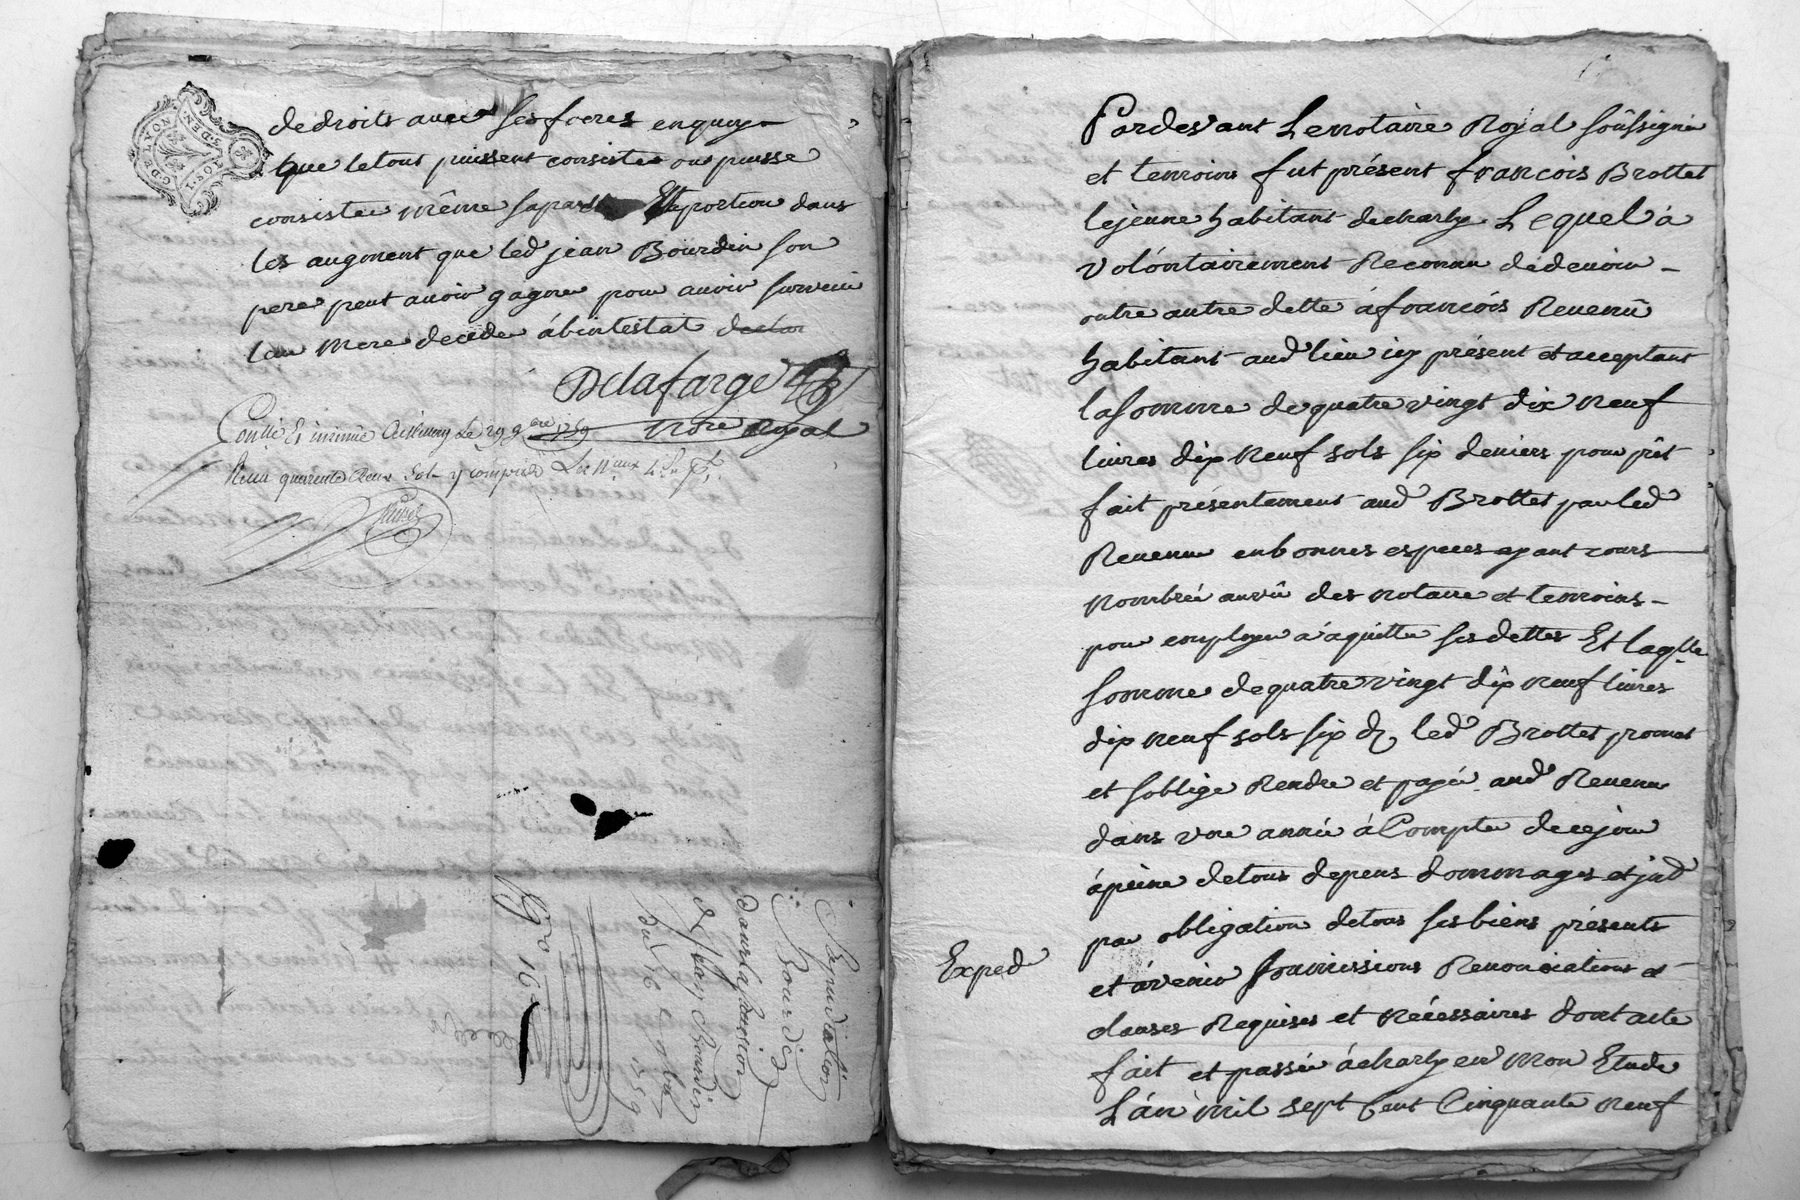 G. D. LYON
2 SOLS. 1 DEN.
de droits avec ses freres en quoy
que le tout puissent consister ou puisse
consister même sa part Et portion dans
les augment que led jean Bourdin son
pere peut avoir gagné pour avoir survecu
mere decedée ábintestat declar
Delafarge
Nore Royal
Conllé Et insinué a Millery Le 29 9bre 1759
Reçu quarente deux sols y compris Les
Repudiation
Bourdin
dans la succession
de jean Bourdin
du 16 8bre
1759
No 16
Pardevant Le notaire Royal soussigné
et temoins fut présent francois Brottet
le jeune habitant de charly Lequel à
volóntairement Reconnu de devoir
outre autre dette à francois Revenû
habitant aud lieu icy présent et acceptant
la somme de quatre vingt dix neuf
livres dix neuf sols six deniers pour prêt
fait présentement aud Brottet par led
Revenu en bonnes especes ayant cours
nombrée au vû des notaire et temoins
pour employer a áquitter ses dettes Et laqlle
somme de quatre vingt dix neuf livres
dix neuf sols six d. led Brottet promet
et soblige Rendre et payér aud Revenu
dans une année á Compter de ce jour
á peine de tous depens dommages et intd
par obligation de tous ses biens présents
et ávenir soumissions Renonciations et
Exped
clauses Requises et nécéssaires dont acte
fait et passé á charly en mon Etude
L'án mil sept Cent Cinquante neuf